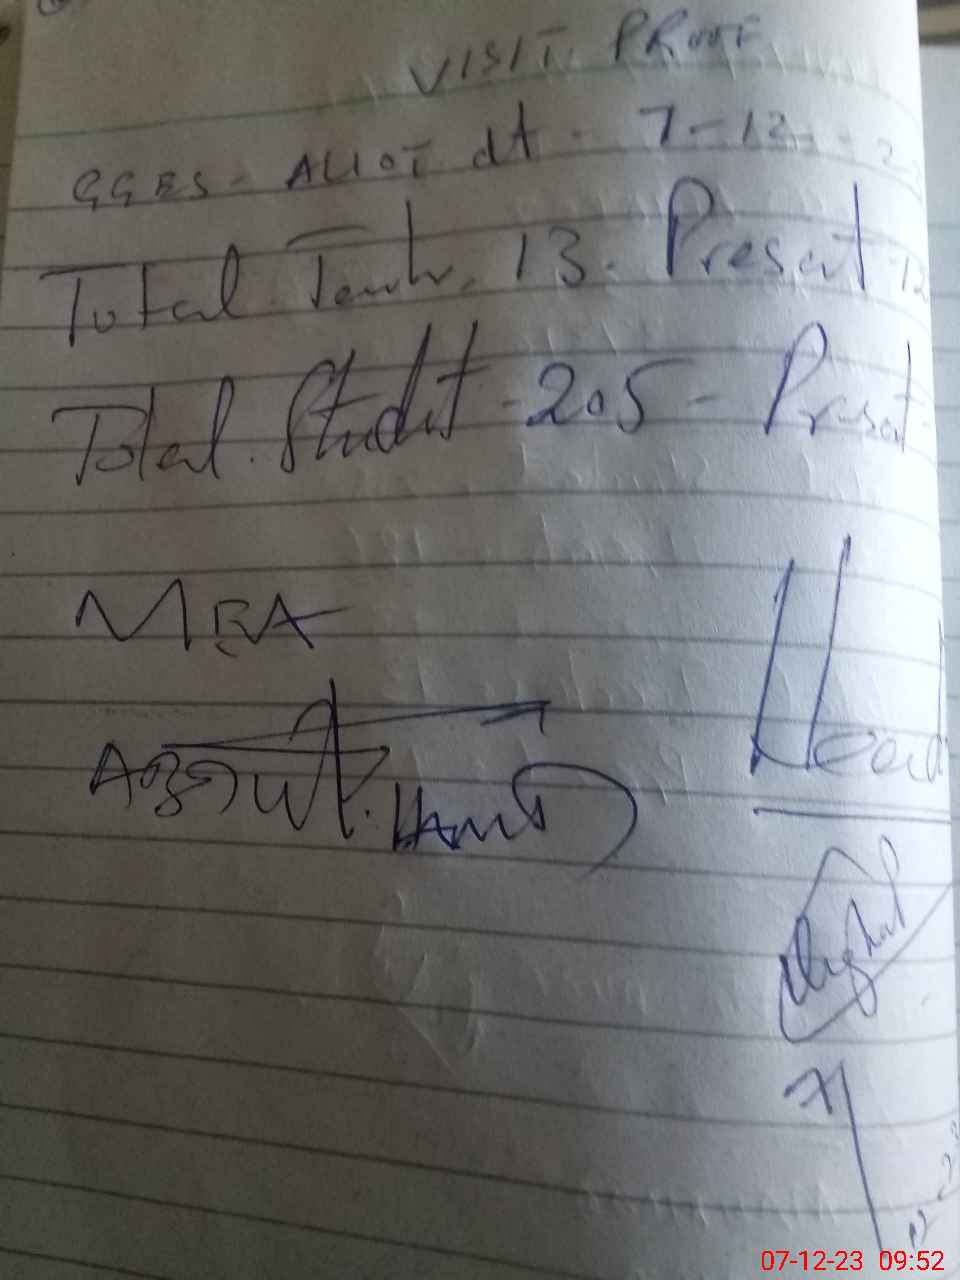 VISIT PROOF
GGES - ALLOT dt - 7-12-
Total Teach. 13. Present 12
Total Studet - 205 - Presat
MEA
Head
07-12-23 09:52